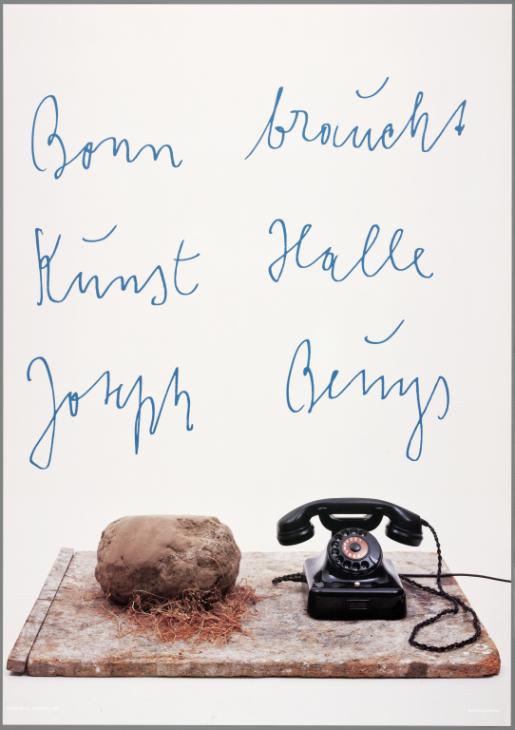 Bonn braucht
Kunst Halle
Joseph Beuys